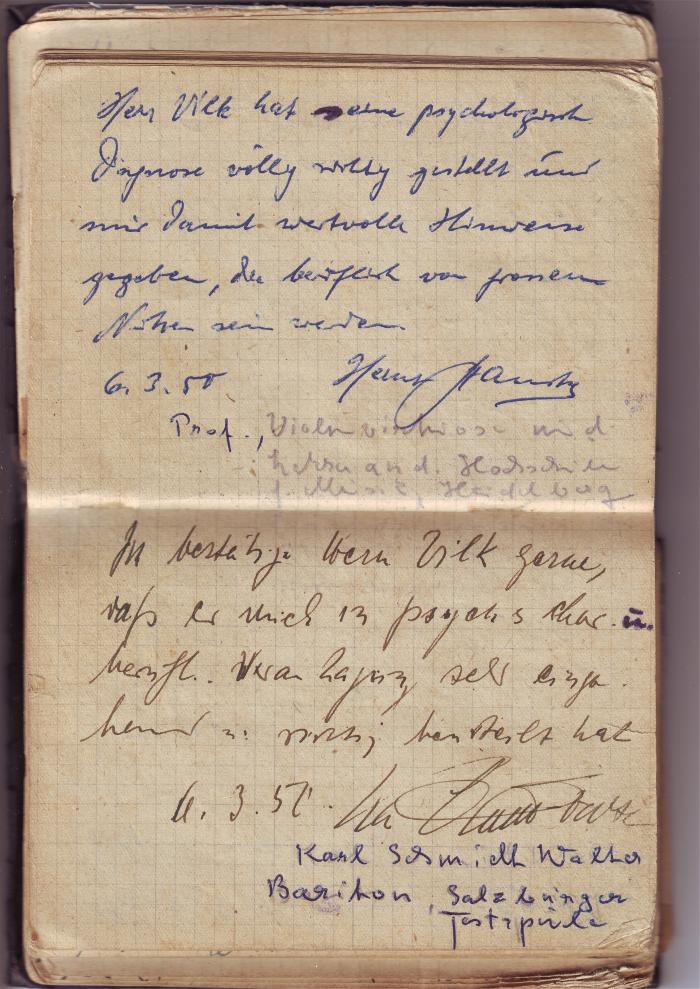 Herr Vilk hat eine psychologische
Diagnose völlig richtig gestellt und
mir damit wertvolle Hinweise
gegeben, die beruflich von grossem
Nutzen sein werden.
6. 3. 50
Prof., Violinvirtuose und
Lehrer an d. Hochschule
f. Musik, Heidelberg
Ich bestätige Herrn Vilk gerne,
daß er mich in psych char. u.
berufl. Veranlagung sehr einge-
hend u. richtig beurteilt hat
6. 3. 51.
Karl Schmidt Walter
Bariton, Salzburger
Festspiele